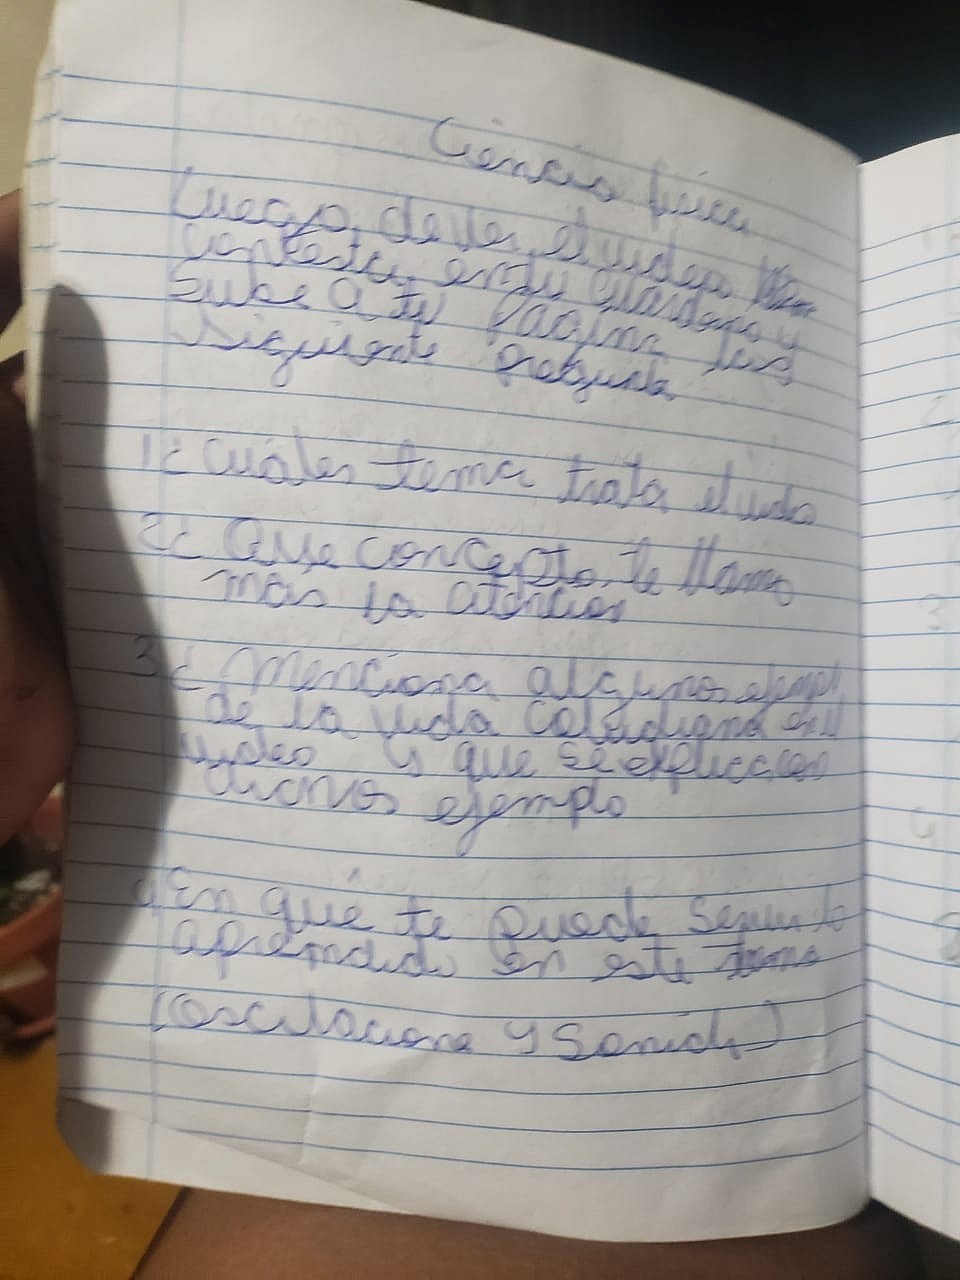 Ciencia física
Luego de ver el video
contesta en tu cuarderno y
sube a tu pagina las
siguiente pregunta
1¿ cuáles tema trata el video
2¿ Que concepto te llamo
mas la atencion
3¿ Menciona algunos ejempl
de la vida cotidiana en el
video y que se explica con
dichos ejemplo
4 En que te puede servir lo
aprendido en este tema
(oscilacione y Sonido)